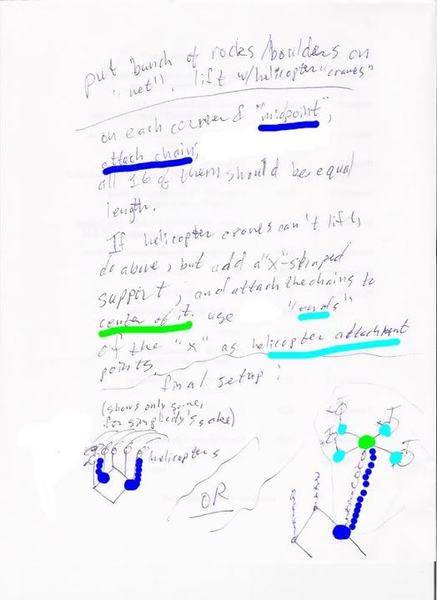 put "bunch of rocks/boulders on
"net". lift w/helicopter "cranes"
on each corner & "midpoint",
attach chain;
all 16 of them should be equal
length.
If helicopter cranes can't lift,
do above, but add a "X"-shaped
support, and attach the chains to
center of it. use "ends"
of the "X" as helicopter attachment
points.
final setup:
(shows only some,
for simplicity's sake)
helicopters
OR